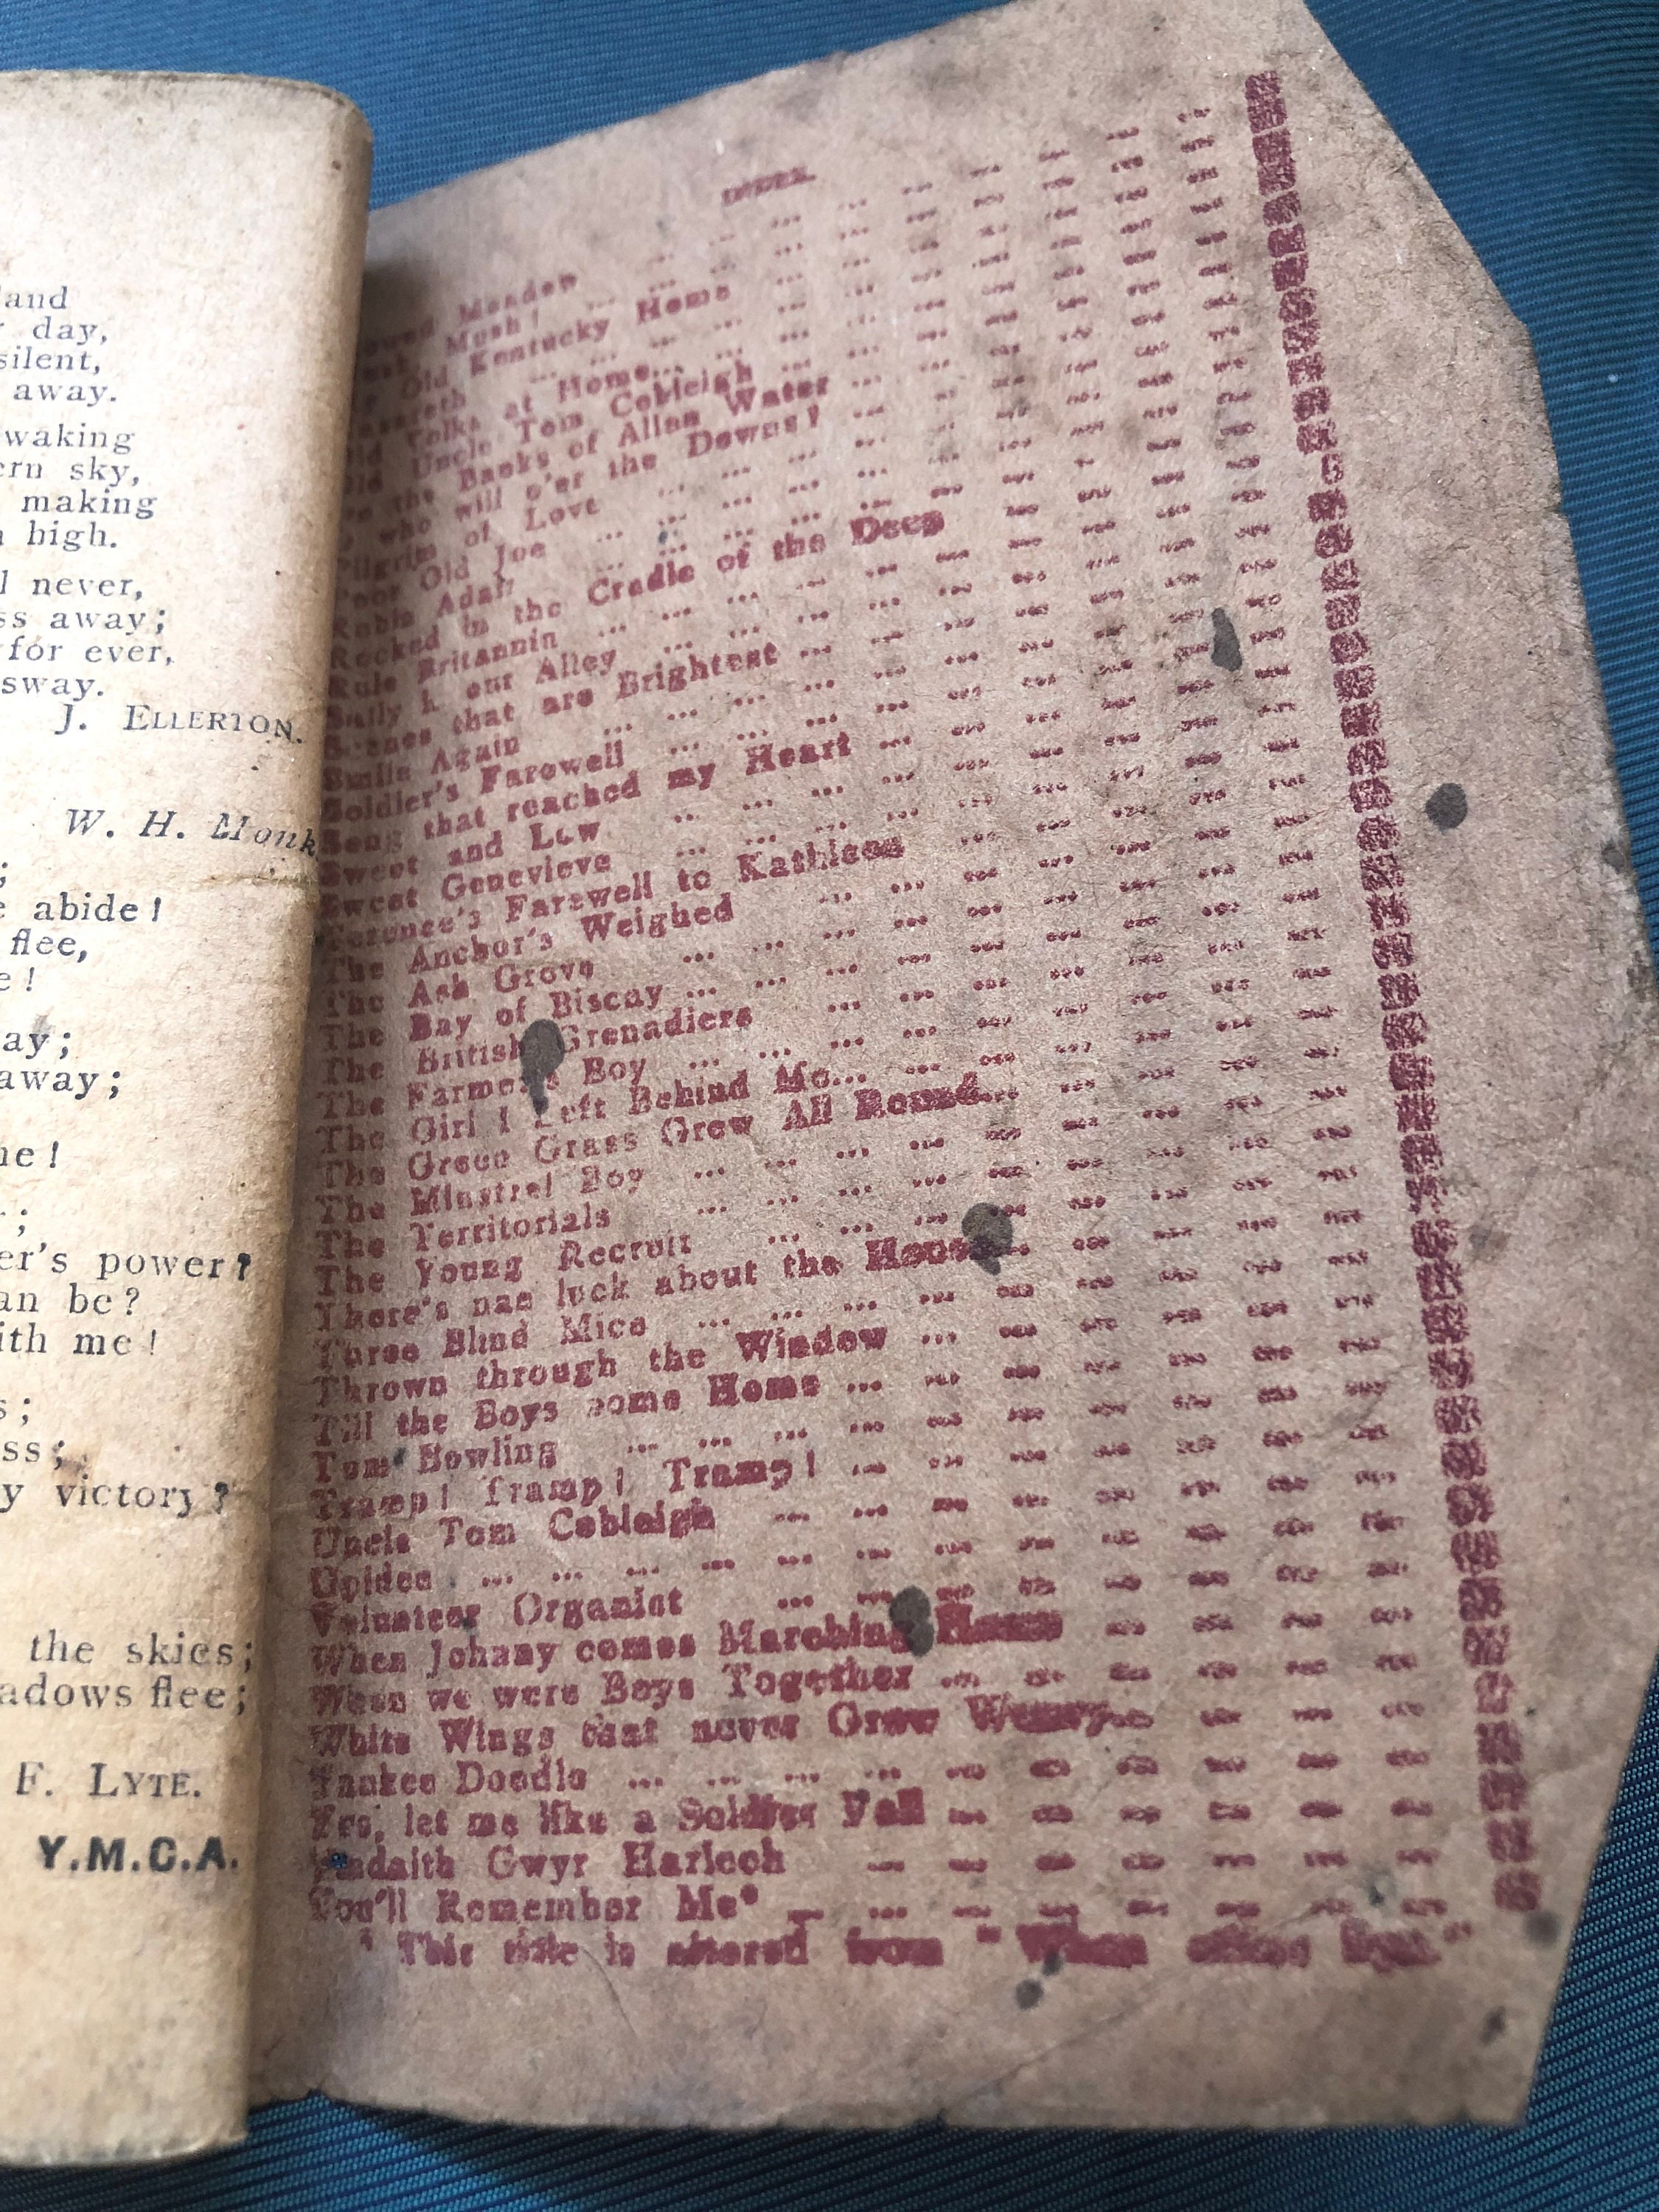 land
day,
silent,
away.
waking
ern sky,
making
high.
never,
ss away;
for ever,
sway.
J. ELLERTON.
W. H. Monk
abide!
flee,
e!
ay;
away;
me!
er's power?
an be?
ith me!
ss;
y victory?
the skies;
adows flee;
F. LYTE.
Y.M.C.A.
INDEX.
Meadow
Mush!
Old Kentucky Home
Nazareth
Old Folks at Home...
Old Uncle Tom Cobleigh
the Banks of Allan Water
who will o'er the Downs?
Pilgrim of Love
Poor Old Joe
Robin Adair
Rocked in the Cradle of the Deep
Rule Britannia
Sally in our Alley
Scenes that are Brightest
Smile Again
Soldier's Farewell
Song that reached my Heart
Sweet and Low
Sweet Genevieve
Terence's Farewell to Kathleen
The Anchor's Weighed
The Ash Grove
The Bay of Biscay
The British Grenadiers
The Farmer's Boy
The Girl I Left Behind Me...
The Green Grass Grew All Round
The Minstrel Boy
The Territorials
The Young Recruit
There's nae luck about the House
Three Blind Mice
Thrown through the Window
Till the Boys come Home
Tom Bowling
Tramp! Tramp! Tramp!
Uncle Tom Cobleigh
Upidee
Volunteer Organist
When Johnny comes Marching Home
When we were Boys Together
White Wings that never Grow Weary
Yankee Doodle
Yes, let me like a Soldier Fall
Gwyr Harlech
You'll Remember Me*
* This title is altered from "When other lips"